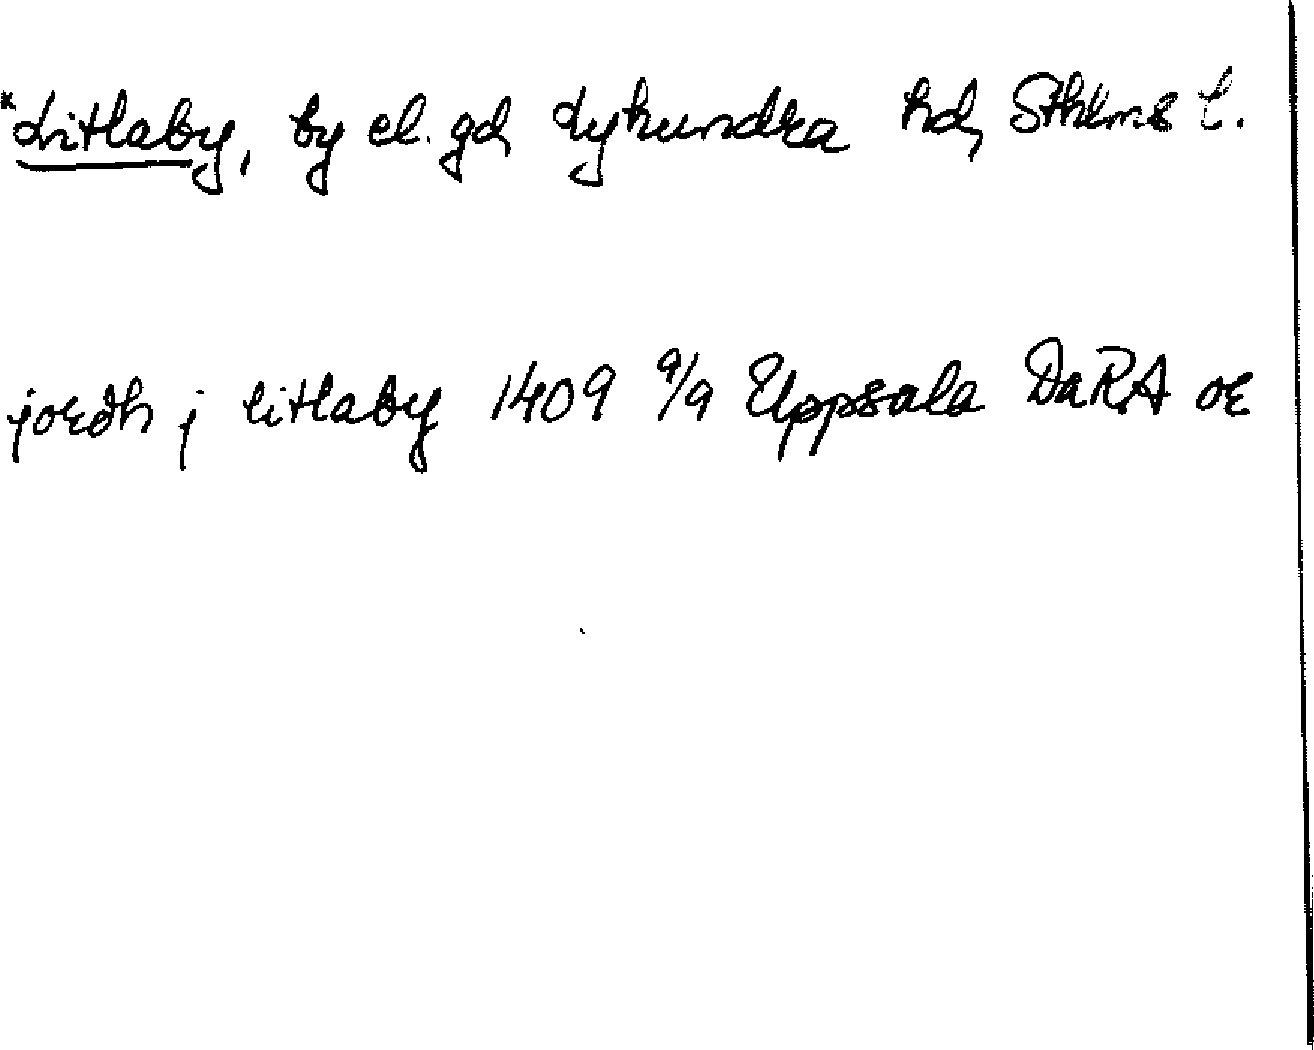 *Litlaby, by el. gd, Lyhundra hd, Sthlms l.
jordh j litlaby 1409 9/9 Uppsala DaRA or